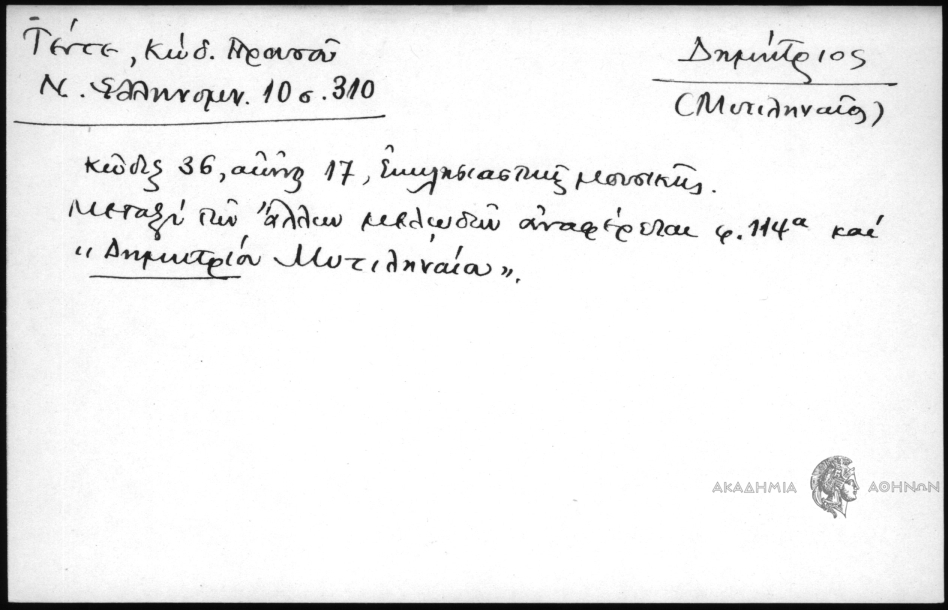 Τέντε, Κώδ. Προυσοῦ
Δημήτριος
Ν. Ἑλληνομν. 10 σ. 310
(Μυτιληναῖος)
Κῶδιξ 36, αἰῶνος 17, Ἐκκλησιαστικῆς μουσικῆς.
Μεταξὺ τῶν ἄλλων μελωδῶν ἀναφέρεται φ. 114α καὶ
"Δημητρίου Μυτιληναίου".
ΑΚΑΔΗΜΙΑ ΑΘΗΝΩΝ